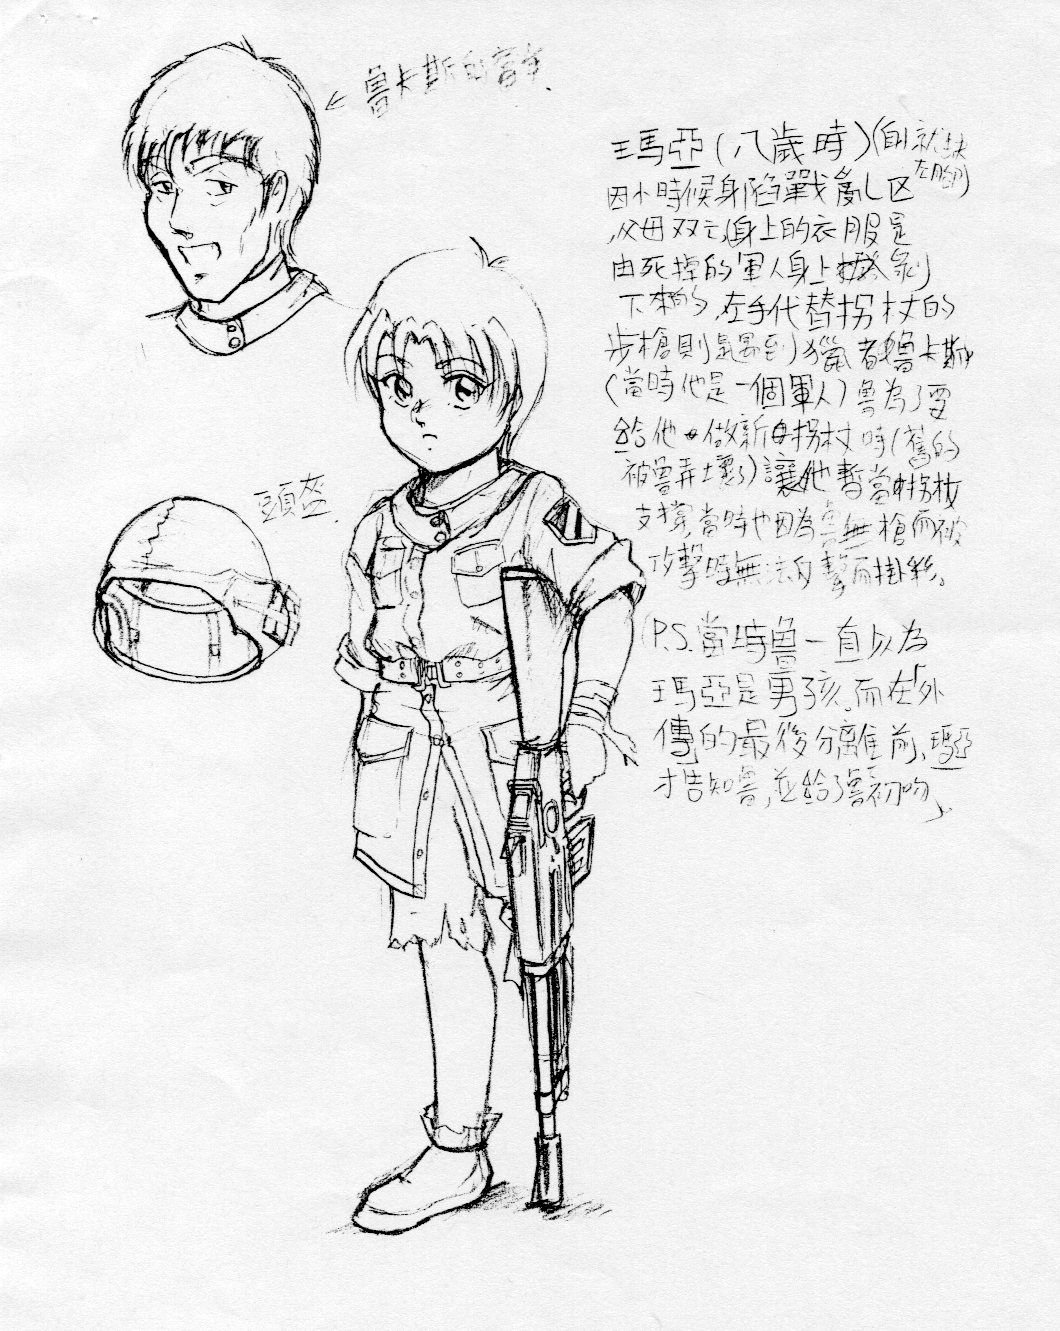 ←魯卡斯的當年
瑪亞(八歲時)(自小就缺
左腳)
因小時候身陷戰亂区
父母双亡,身上的衣服是
由死掉的軍人身上剝
下來的,左手代替拐杖的
步槍則是遇到獵者魯卡斯
(當時他是一個軍人)魯為了要
給他做新的拐杖時(舊的
被魯弄壞了)讓他暫當拐杖
支撐,當時也因為無槍而被
攻擊時無法反擊而掛彩。
頭盔
(P.S.當時魯一直以為
瑪亞是男孩,而在「外
傳」的最後分離前,瑪亞
才告知魯,並給了魯初吻)